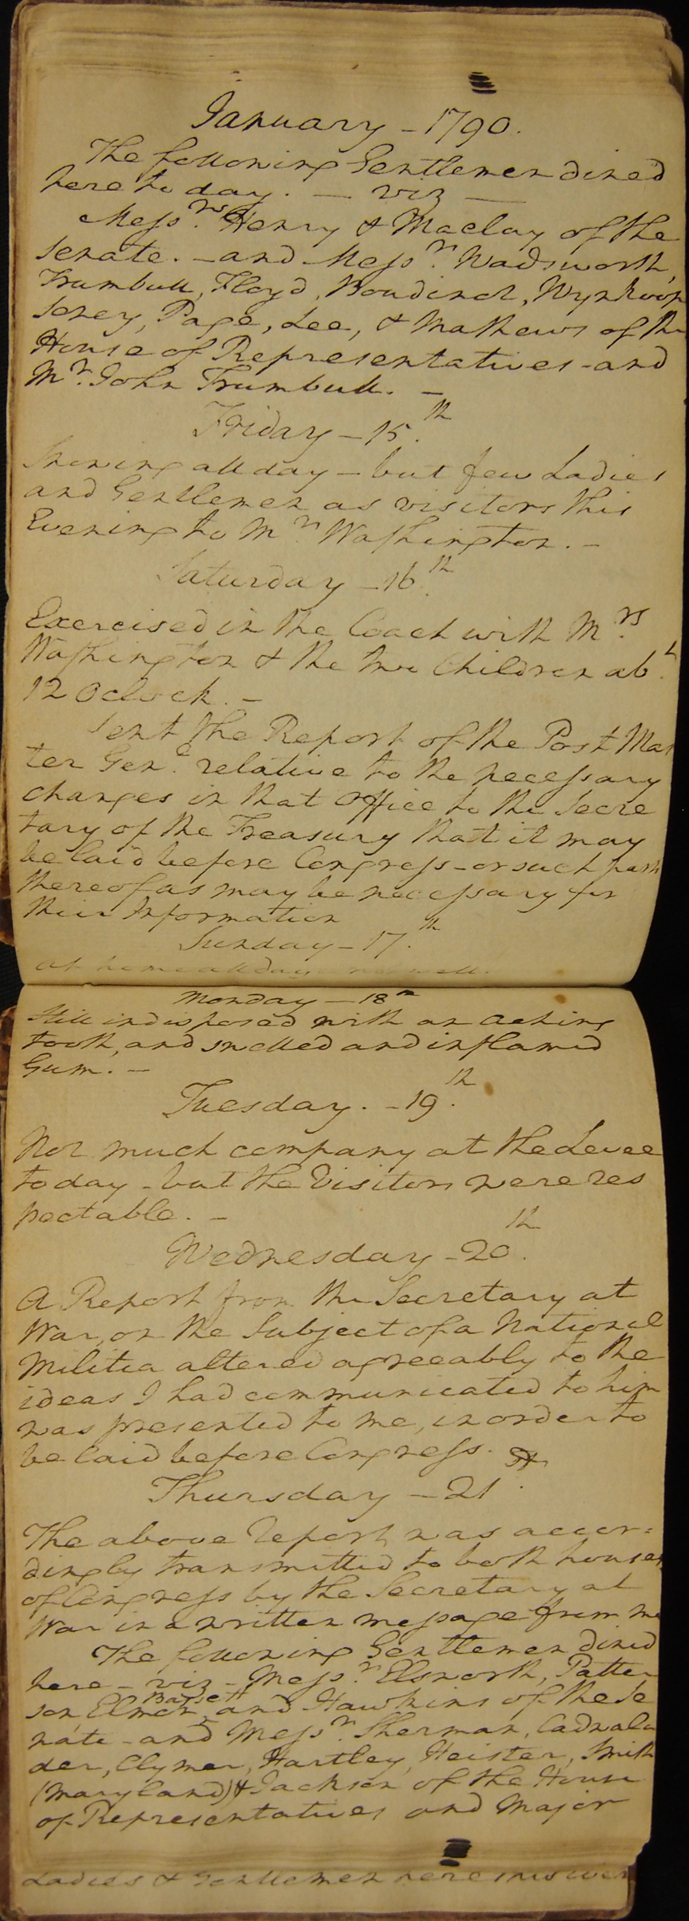 January – 1790.
The following Gentlemen dined
here to day. – viz –
Messrs. Henry & Maclay of the
Senate. – and Messrs. Wadsworth,
Trumbull, Floyd, Boudinot, Wynkoop
Seney, Page, Lee, & Mathews of the
House of Representatives – and
Mr. John Trumbull. –
Friday – 15th.
Snowing all day – but few Ladies
and Gentlemen as visitors this
Evening to Mrs Washington. –
Saturday – 16th.
Exercised in the Coach with Mrs.
Washington & the two Children abt.
12 Oclock. –
Sent the Report of the Post Mas
ter Genl. relative to the necessary
changes in that Office to the Secre
tary of the Treasury that it may
be laid before Congress – or such parts
thereof as may be necessary for
their Information
Sunday – 17th.
At home all day – not well.
Monday – 18th
Still indisposed with an aching
tooth, and swelled and inflamed
Gum. –
Tuesday. – 19th.
Not much company at the Levee
to day – but the Visitors were res
pectable. –
Wednesday – 20th.
A Report from the Secretary at
War, on the Subject of a National
Militia altered agreeably to the
ideas I had communicated to him
was presented to me, in order to
be laid before Congress.
Thursday – 21st.
The above report was accor=
dingly transmitted to both houses
of Congress by the Secretary at
War in a written message from me
The following Gentlemen dined
here – viz – Messrs. Elsworth, Patter
son Elmer, Bassett and Hawkins of the Se
nate – and Messrs. Sherman, Cadwala
der, Clymer, Hartley, Heister, Smith
(Maryland) & Jackson of the House
of Representatives and Major
Ladies & Gentlemen here this even